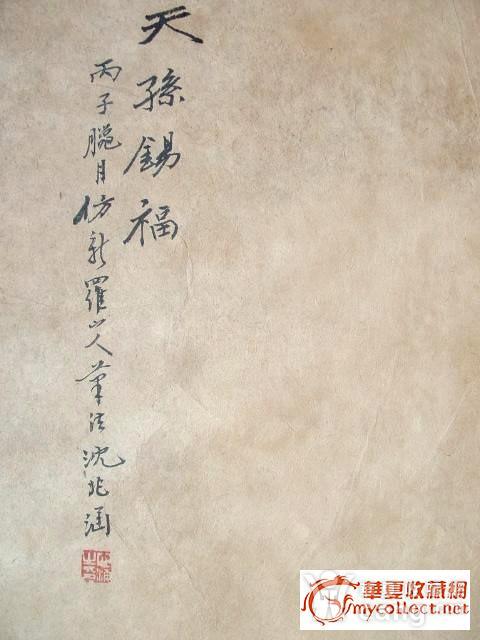 天孫錫福
丙子臘月仿新羅山人筆法沈兆涵
華夏收藏網
mycollect.net